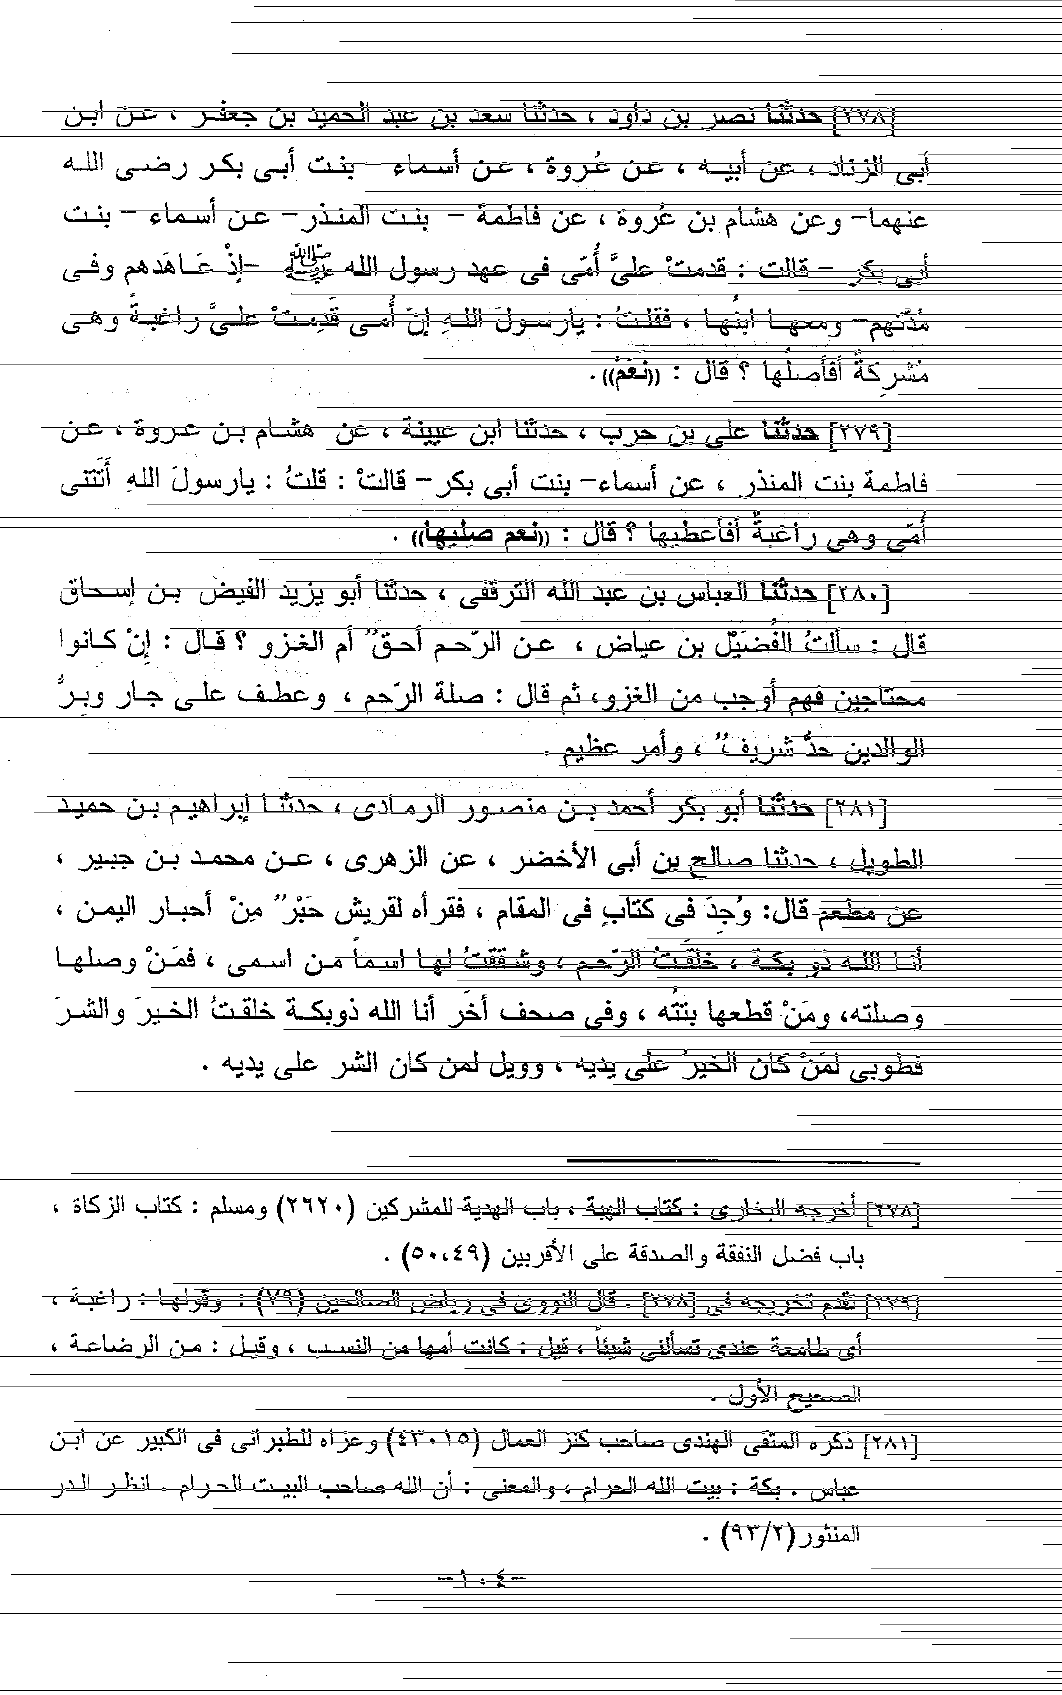 [٢٧٨] حدثنا نصر بن داود ، حدثنا سعد بن عبد الحميد بن جعفر ، عن ابن
أبى الزناد ، عن أبيه ، عن عُروة ، عن أسماء - بنت أبى بكر رضى الله
عنهما- وعن هشام بن عُروة ، عن فاطمة - بنت المنذر- عن أسماء - بنت
أبى بكر - قالت : قدمتْ علىَّ أُمّى فى عهد رسول الله ﷺ -إذْ عَاهَدهم وفى
مُدّتهم- ومعها ابنُها ، فقلتُ : يارسولَ اللهِ إنّ أُمى قَدِمتْ علىَّ راغبةً وهى
مُشركةٌ أفأصلُها ؟ قال : ((نَعَمْ)) .
[٢٧٩] حدثنا على بن حرب ، حدثنا ابن عيينة ، عن هشام بن عروة ، عن
فاطمة بنت المنذر ، عن أسماء- بنت أبى بكر- قالتْ : قلتُ : يارسولَ اللهِ أتَتنى
أُمّى وهى راغبةٌ أفأعطيها ؟ قال : ((نعم صليها)) .
[٢٨٠] حدثنا العباس بن عبد الله الترقفى ، حدثنا أبو يزيد الفيض بن إسحاق
قال : سألتُ الفُضَيْل بن عياض ، عن الرّحم أحقٌ أم الغزو ؟ قال : إنْ كانوا
محتاجين فهم أوجب من الغزو، ثم قال : صلة الرّحم ، وعطف على جار وبرُّ
الوالدين حدٌّ شريفٌ ، وأمر عظيم .
[٢٨١] حدثنا أبو بكر أحمد بن منصور الرمادى ، حدثنا إبراهيم بن حميد
الطويل ، حدثنا صالح بن أبى الأخضر ، عن الزهرى ، عن محمد بن جبير ،
عن مطعم قال: وُجِدَ فى كتابٍ فى المقام ، فقرأه لقريش حَبْرٌ مِنْ أحبار اليمن ،
أنا الله ذو بكة ، خلقتُ الرّحم ، وشققتُ لها اسماً من اسمى ، فمَنْ وصلها
وصلته، ومَنْ قطعها بتتُه ، وفى صحف أخَر أنا الله ذوبكة خلقتُ الخيرَ والشرَ
فطوبى لمَنْ كان الخيرُ على يديه ، وويل لمن كان الشر على يديه .
[٢٧٨] أخرجه البخارى : كتاب الهبة ، باب الهدية للمشركين (٢٦٢٠) ومسلم : كتاب الزكاة ،
باب فضل النفقة والصدقة على الأقربين (٥٠،٤٩) .
[٢٧٩] تقدم تخريجه فى [٢٧٨] . قال النووى فى رياض الصالحين (٧٩) : وقولها : راغبة ،
أى طامعة عندى تسألنى شيئاً ، قيل : كانت أمها من النسب ، وقيل : من الرضاعة ،
الصحيح الأول .
[٢٨١] ذكره المتقى الهندى صاحب كنز العمال (٤٣٠١٥) وعزاه للطبرانى فى الكبير عن ابن
عباس . بكة : بيت الله الحرام ، والمعنى : أن الله صاحب البيت الحرام . انظر الدر
المنثور(٩٣/٢) .
-١٠٤-